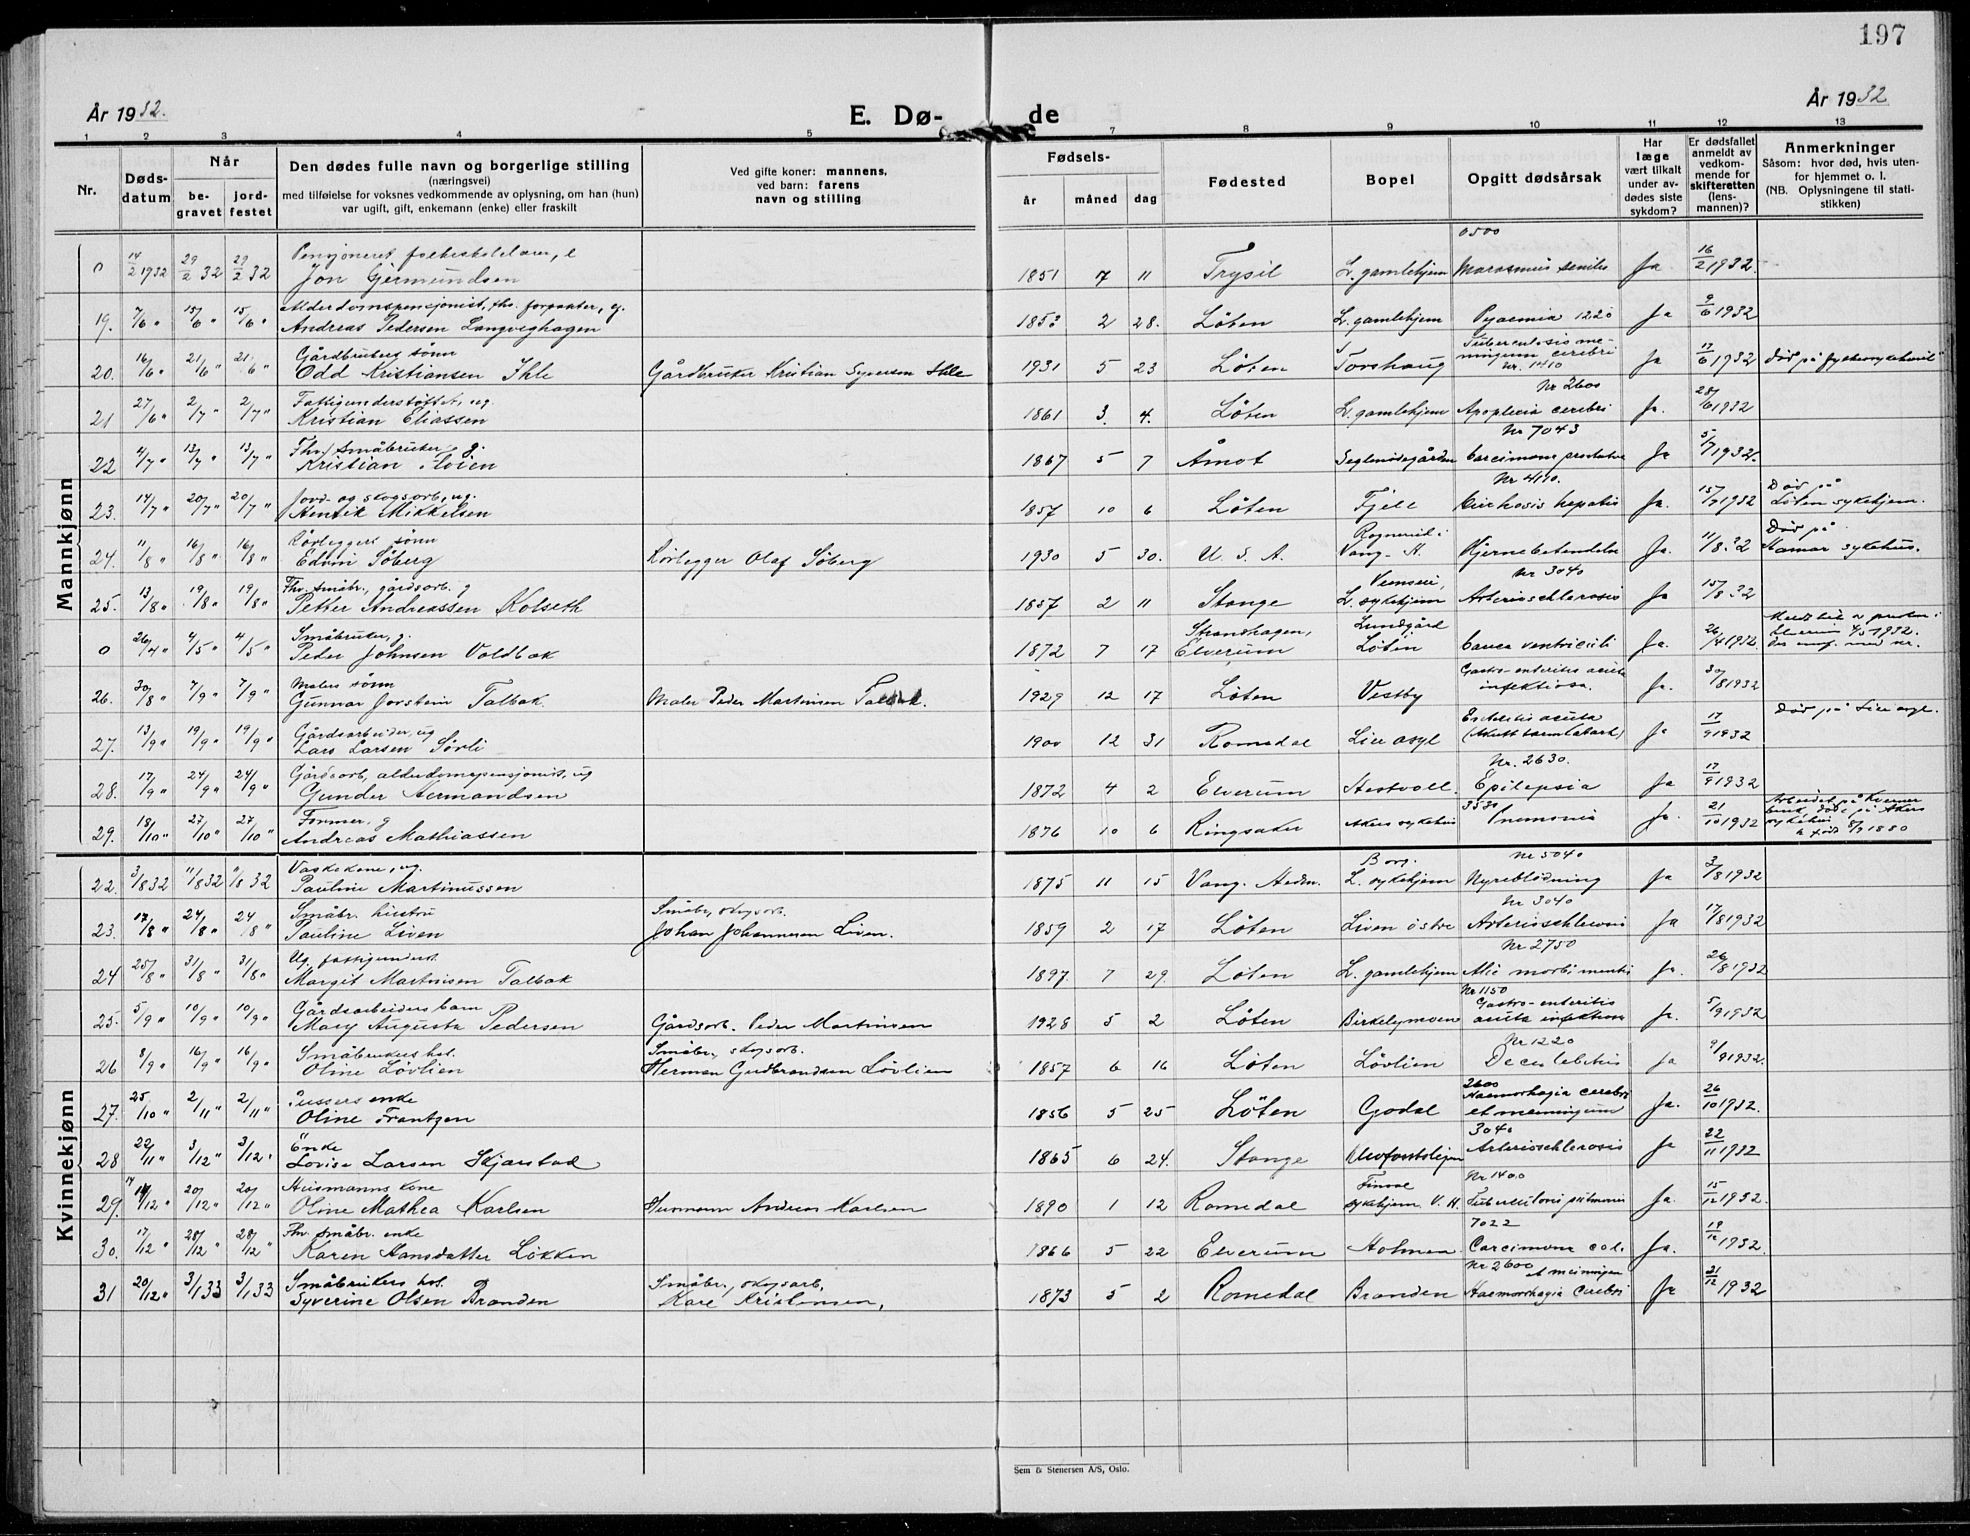 197
År 1932. E. Dø- de År 1932
1 2 3 4 5 7 8 9 10 11 12 13
Nr.
Døds-
datum
Når
be-
gravet
jord-
festet
Den dødes fulle navn og borgerlige stilling
(næringsvei)
med tilføielse for voksnes vedkommende av oplysning, om han (hun)
var ugift, gift, enkemann (enke) eller fraskilt
Ved gifte koner: mannens,
ved barn: farens
navn og stilling
Fødsels-
år måned dag
Fødested
Bopel
Opgitt dødsårsak
Har
læge
vært tilkalt
under av-
dødes siste
sykdom?
Er dødsfallet
anmeldt av
vedkom-
mende for
skifteretten
(lens-
mannen)?
Anmerkninger
Såsom: hvor død, hvis uten-
for hjemmet o. l.
(NB. Oplysningene til stati-
stikken)
Mannkjønn
0 14/2 1932 29/2 32 29/2 32 Jon Gjermundsen 1851 7 11 Trysil L. gamlehjem Marasmus senilis Ja 16/2 1932.
0500
19. 7/6 " 15/6 " 15/6 " Alderdomspensjonist, fhv. forpakter, g.
Andreas Pedersen Langveghagen 1853 2 28. Løten L. gamlehjem Pyaemia 1220 Ja 9/6 1932
20. 16/6 " 21/6 " 21/6 " Gårdbrukers sønn
Odd Kristiansen Ihle Gårdbruker Kristian Syversen Ihle 1931 5 23 Løten Torshaug Tuberculosis me-
ningum cerebri Ja 17/6 1932 død på fylkessykehuset
21 27/6 " 2/7 " 2/7 " Fattigunderstøttet, ug.
Kristian Eliassen 1861 3. 4. Løten L. gamlehjem Nr 2600
Apoplexia cerebri Ja. 28/6 1932
22 4/7 " 13/7 " 13/7 " Fhv. Småbruker g.
Kristian Moien 1867 5 7 Åmot Nr 7043
Carcinoma prostatae Ja 5/7 1932.
23. 14/7 " 20/7 " 20/7 " Jord- og skogsarb., ug.
Henrik Mikkelsen 1857 10 6 Løten Fjell Nr 4110.
Cirrhosis hepatis Ja. 15/7 1932 Død på
Løten sykehjem.
24. 11/8 " 16/8 " 16/8 " Rørleggers sønn
Edvin Søberg Rørlegger Olaf Søberg 1930 5 30. U. S. A. Rognerud i
Vang. H. Hjernebetendelse Ja. 11/8 32 Død på
Hamar sykehus.
25. 13/8 " 19/8 " 19/8 " Fhv. småbr., gårdsarb. g
Petter Andreassen Kolseth 1857 2 11 Stange L. sykehjem Nr 3040
Arterioschlerosis Ja 15/8 32
0 26/4 " 4/5 " 4/5 " Småbruker, g.
Peder Johnsen Voldbak 1872 7 17 Strandhagen,
Elverum Lundgård
Løten Cancer ventriculi Ja. 26/4 1932.
26. 30/8 " 7/9 " 7/9 " Malers sønn
Gunnar Jorstein Talbak. Maler Peder Martinsen Talbak. 1929 12 17 Løten Vestby Gastro-enteritis acuta
infektiosa. Ja. 30/8 1932
27. 13/9 " 19/9 " 19/9 " Gårdsarbeider, ug
Lars Larsen Sørli 1900 12 31 Romedal Lier asyl Enteritis acuta
(Akutt tarmkatarh) Ja 17/9 1932 Død på Lier asyl.
28. 17/9 " 24/9 " 24/9 " Gårdsarb, alderdomspensjonist, ug
Gunder Hermandsen 1872 4 2 Elverum Hestvoll Nr. 2630.
Epilepsia Ja 17/9 1932
29. 18/10 " 27/10 " 27/10 " Former, g
Andreas Mathiassen 1876 10 6 Ringsaker Akers sykehus 3530
Pnemonia Ja. 21/10 1932 født 8/9 1880
Kvinnekjønn
22. 3/8 32 11/8 32 11/8 32 Vaskekone, ug.
Pauline Martinussen 1875 11 15 Vang. Hedm. Borg.
L. sykehjem Nr 5040
Nyreblødning Ja 3/8 1932
23. 17/8 " 24/8 " 24/8 " Småbr. hustru
Pauline Liven Småbr., skogsarb.
Johan Johannesen Liven. 1859 2 17 Løten Liven østre Nr 3040
Arterioschlerosis Ja 17/8 1932
24 25/8 " 31/8 " 31/8 " Ug. fattigunderst.
Margit Martinsen Talbak 1897. 7 29. Løten L. gamlehjem Nr 2750
Alie morbi mentis Ja. 26/8 1932
25. 5/9 " 10/9 " 10/9 " Gårdsarbeiders barn
Mary Augusta Pedersen Gårdsarb. Peder Martinsen 1928 5 2 Løten Birkelymoen Nr 1150
Gastro-enteritis
acuta infektiosa Ja. 5/9 1932
26 8/9 " 16/9 " 16/9 " Småbrukers hst.
Oline Løvlien Småbr., skogsarb.
Herman Gudbrandsen Løvlien 1857 6 16 Løten Løvlien Nr 1220
Decubitus Ja 9/9 1932.
27. 25/10 " 2/11 " 2/11 " Pussers enke
Oline Frantzen 1856 5 25 Løten Godal 2600
Haemorrhagia cerebri
et meningum Ja. 26/10 1932.
28 22/11 " 3/12 " 3/12 " Enke
Lovise Larsen Skjærstad 1865 6 24. Stange 3040
Arterioschlerosis Ja 22/11 1932
29. 14/12 " 20/12 " 20/12 " Husmanns kone
Oline Mathea Karlsen Husmann Andreas Karlsen 1890 1 12 Romedal sykehjem V. H. Nr 1400
Tuberculosis pulmonis Ja. 15/12 1932.
30. 17/12 " 28/12 " 28/12 " Fhv. småbr. enke
Karen Hansdatter Løkken 1866 5 22 Elverum Holmen. 7022
Carcinoma coli Ja. 19/12 1932.
31 20/12 " 3/1 33 3/1 33 Småbrukers hst.
Syverine Olsen Branden Småbr., skogsarb,
Kare Kristensen, 1873 5 2 Romedal Branden Nr 2600 et meningum
Haemorrhagia cerebri Ja 21/12 1932
Sem & Stenersen A/S, Oslo.